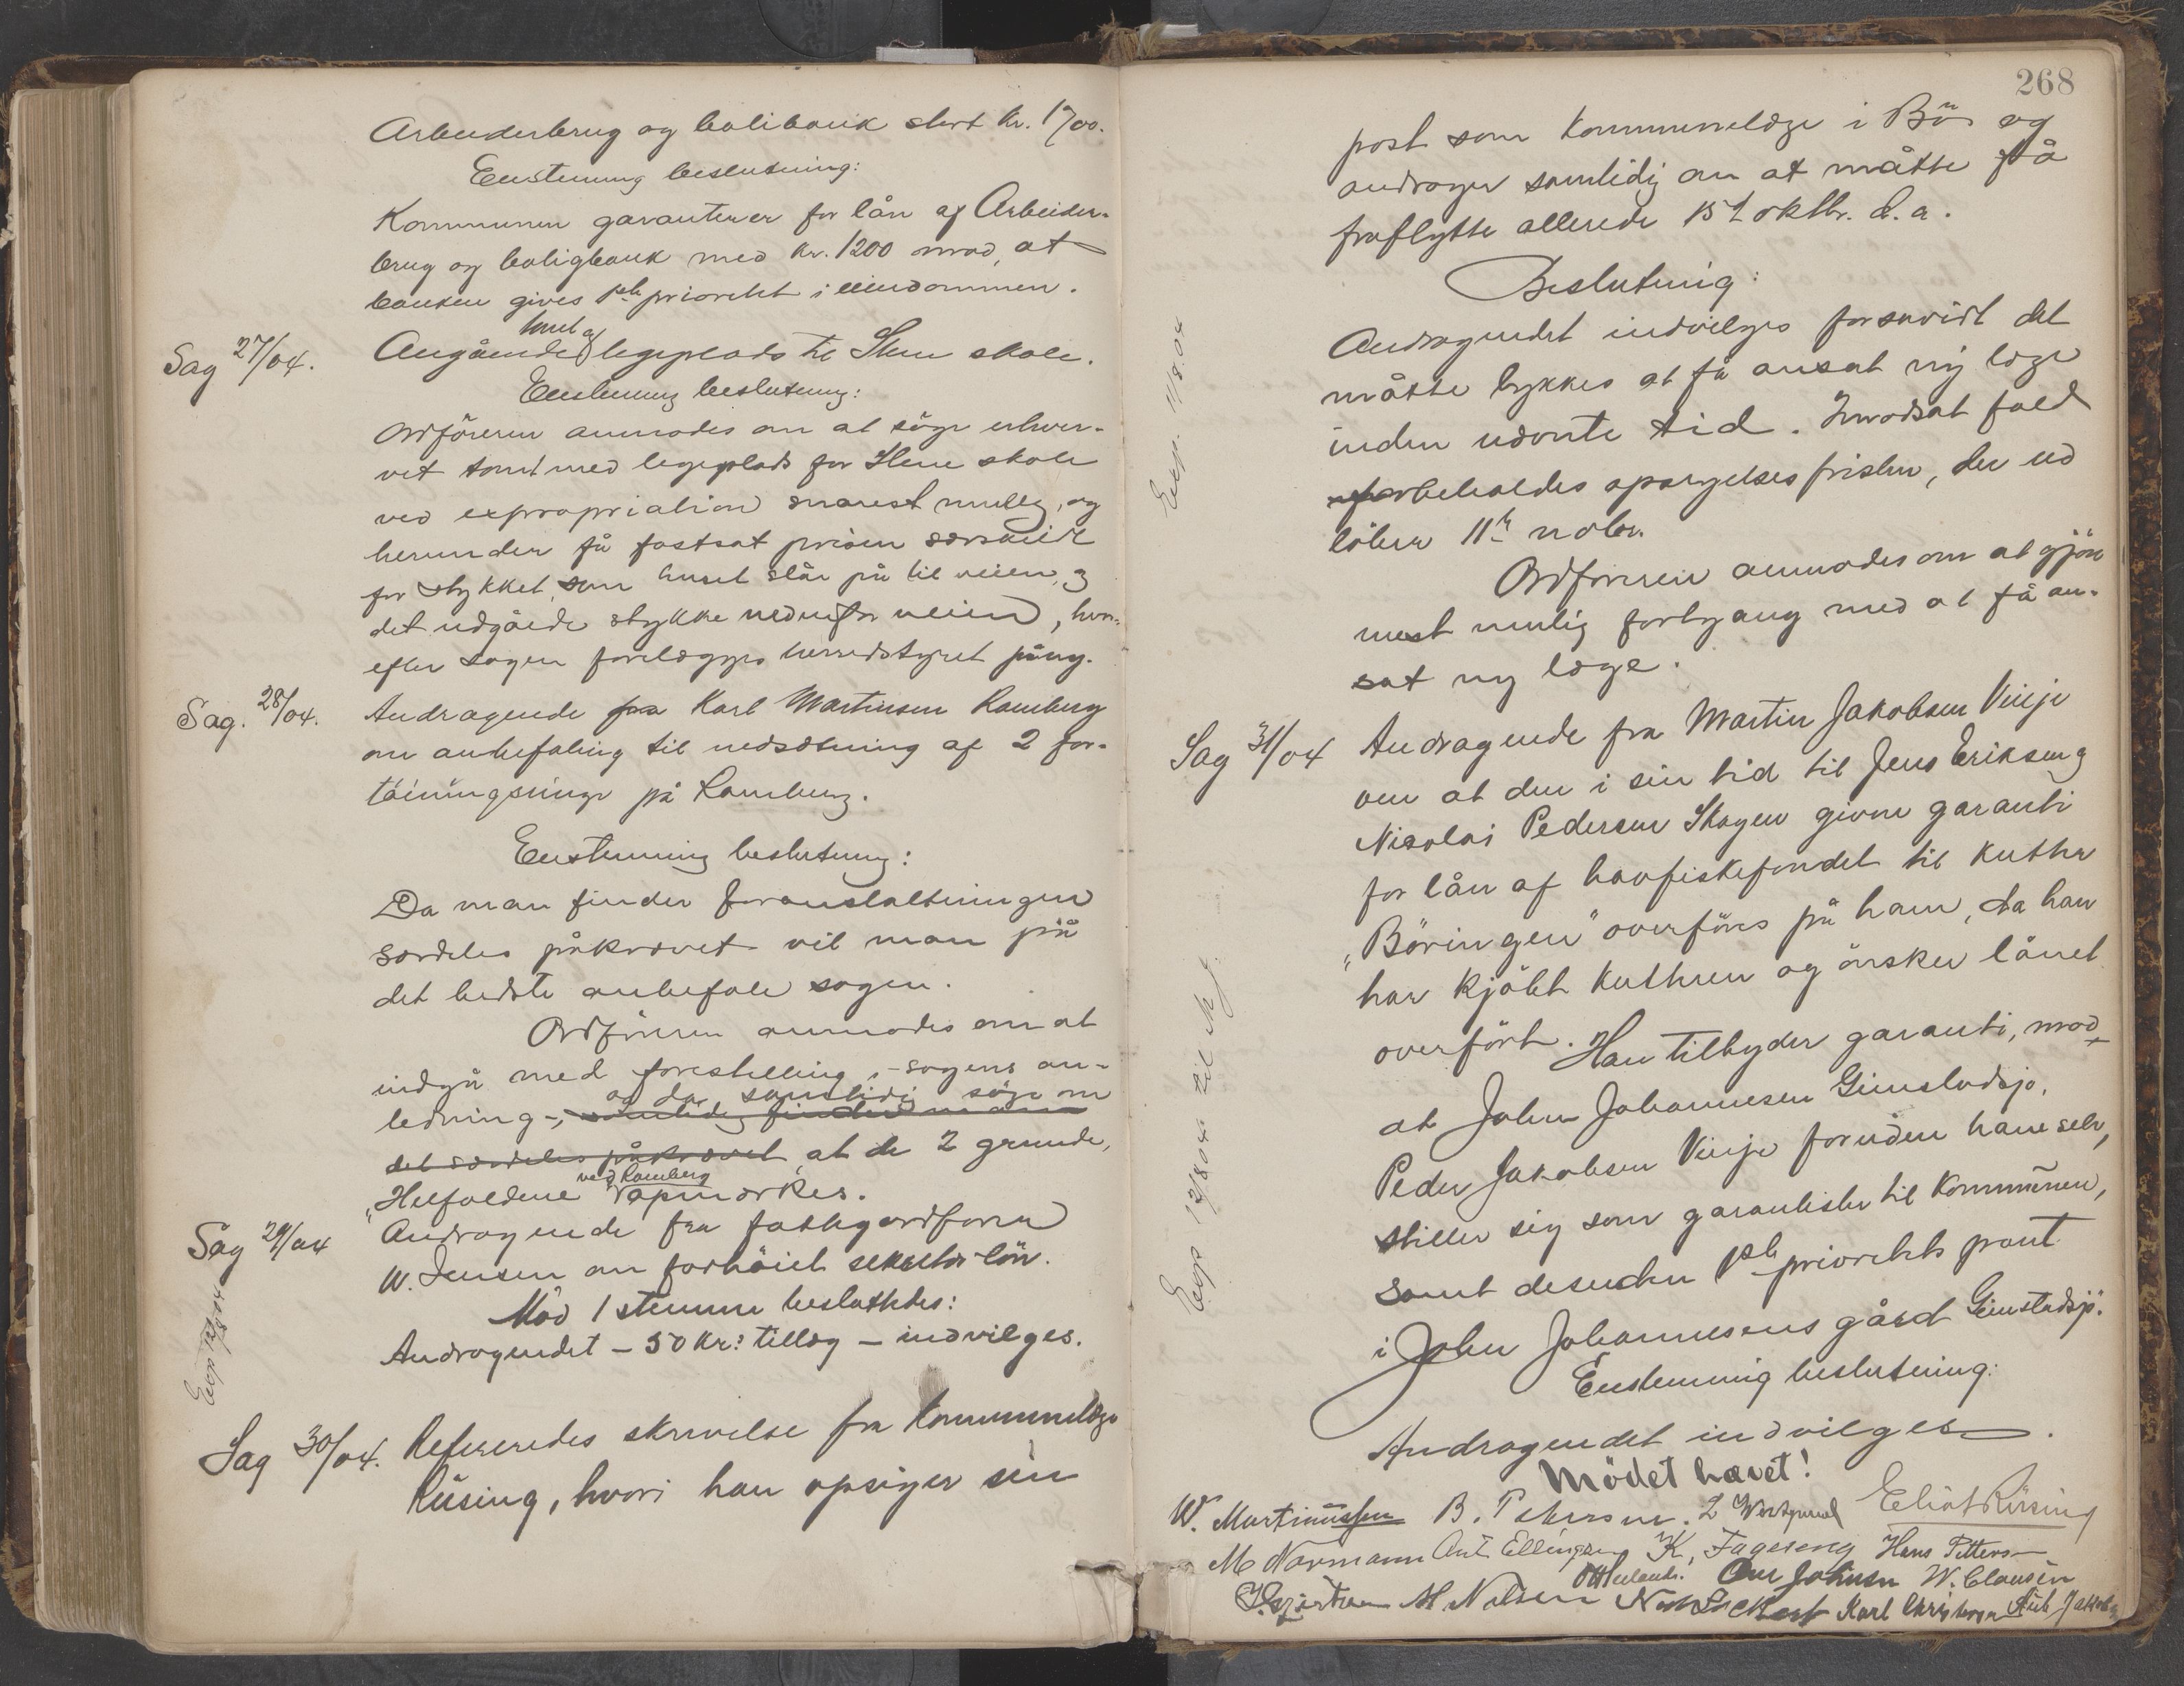 Arbeiderbrug og bolibank stort kr. 1700.
Enstemmig beslutning:
Kommunen garanterer for lån af Arbeider-
brug og boligbank med kr. 1200 mod, at
banken gives 1ste prioritet i eiendommen.
Sag 27/04. Angående tomt og legeplads til Steine skole.
Enstemmig beslutning:
Ordföreren anmodes om at söge erhver-
vet tomt med legeplads for Steine skole
ved expropriation snarest mulig, og
herunder få fastsat prisen særskilt
for stykket, som huset står på til veien, og
det udgåede stykke nedenfor veien, hvor-
efter sagen forelægges herredstyret påny.
Sag. 28/04. Andragende fra Karl Martinsen Ramberg
om anbefaling til nedsætning af 2 for-
töiningsringe på Ramberg.
Enstemmig beslutning:
Da man finder foranstaltningen
særdeles påkrævet vil man på
det bedste anbefale sagen.
Ordföreren anmodes om at
indgå med forestilling i sagens an-
ledning -, og da samtidig söge om
samtidig finder man
det særdeles påkrævet at de 2 grunde,
"Helfaldene ved Ramberg opmærkes.
Sag 29/04 Andragende fra fattigordförer
W. Jensen om forhöiet sekretærlön.
Mod 1 stemme besluttedes:
Andragendet - 50 kr: tillæg - indvilges.
Exp 12/8 04
Sag 30/04. Refereredes skrivelse fra Kommunelæge
Rüsing, hvori han opsiger sin
268
post som kommunelæge i Bö og
andrager samtidig om at måtte få
fraflytte allerede 15de oktbr. d.a.
Beslutning:
Andragendet indvilges forsavidt det
måtte lykkes at få ansat ny læge
inden nævnte tid. I modsat fald
forbeholdes opsigelsesfristen, der ud
löber 11te novbr.
Ordföreren anmodes om at gjöre
mest mulig fortgang med at få an-
sat ny læge.
Exp. 11/8.04
Sag 31/04 Andragende fra Martin Jakobsen Vinje
om at den i sin tid til Jens Eriksen og
Nicolai Pedersen Skagen givne garanti
for lån af havfiskefondet til kutter
"Böringen" overföres på ham, da han
har kjöbt kutteren og önsker lånet
overfört. Han tilbyder garanti, mod
at John Johannesen Guinstadsjö,
Peder Jakobsen Vinje foruden ham selv,
stiller sig som garantister til kommunen,
samt desuden 1ste prioritets pant
i John Johannesens gård Guinstadsjö.
Exp 12/8 04 til
Enstemmig beslutning:
Andragendet indvilges.
Mödet hævet!
W. Martinussen B. Petersen. Eliot Rüsing
M Normann Ant Ellingsen K. Fagereng Hans Petters
Ole Johnsen W. Clausen
M Nilsen Karl Christensen